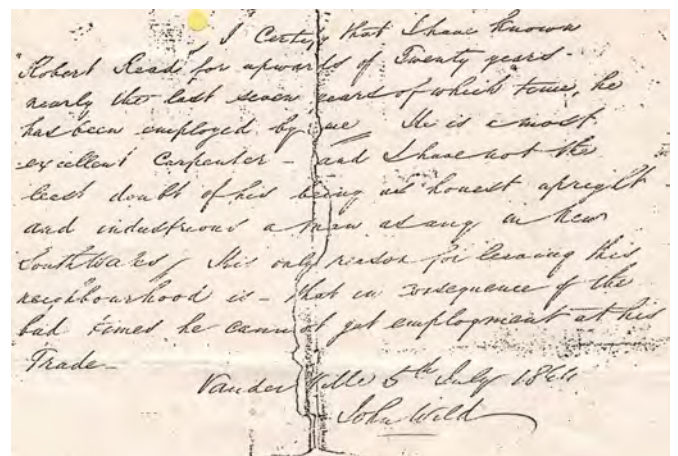 I Certify that I have known
Robert Read for upwards of Twenty years -
nearly the last seven years of which time, he
has been employed by me He is a most
excellent Carpenter - and I have not the
least doubt of his being as honest upright
and industrious a man as any in New
South Wales, His only reason for leaving this
neighbourhood is - that in consequence of the
bad times he cannot get employment at his
Trade -
Vanderville 5th July 1844
John Wild